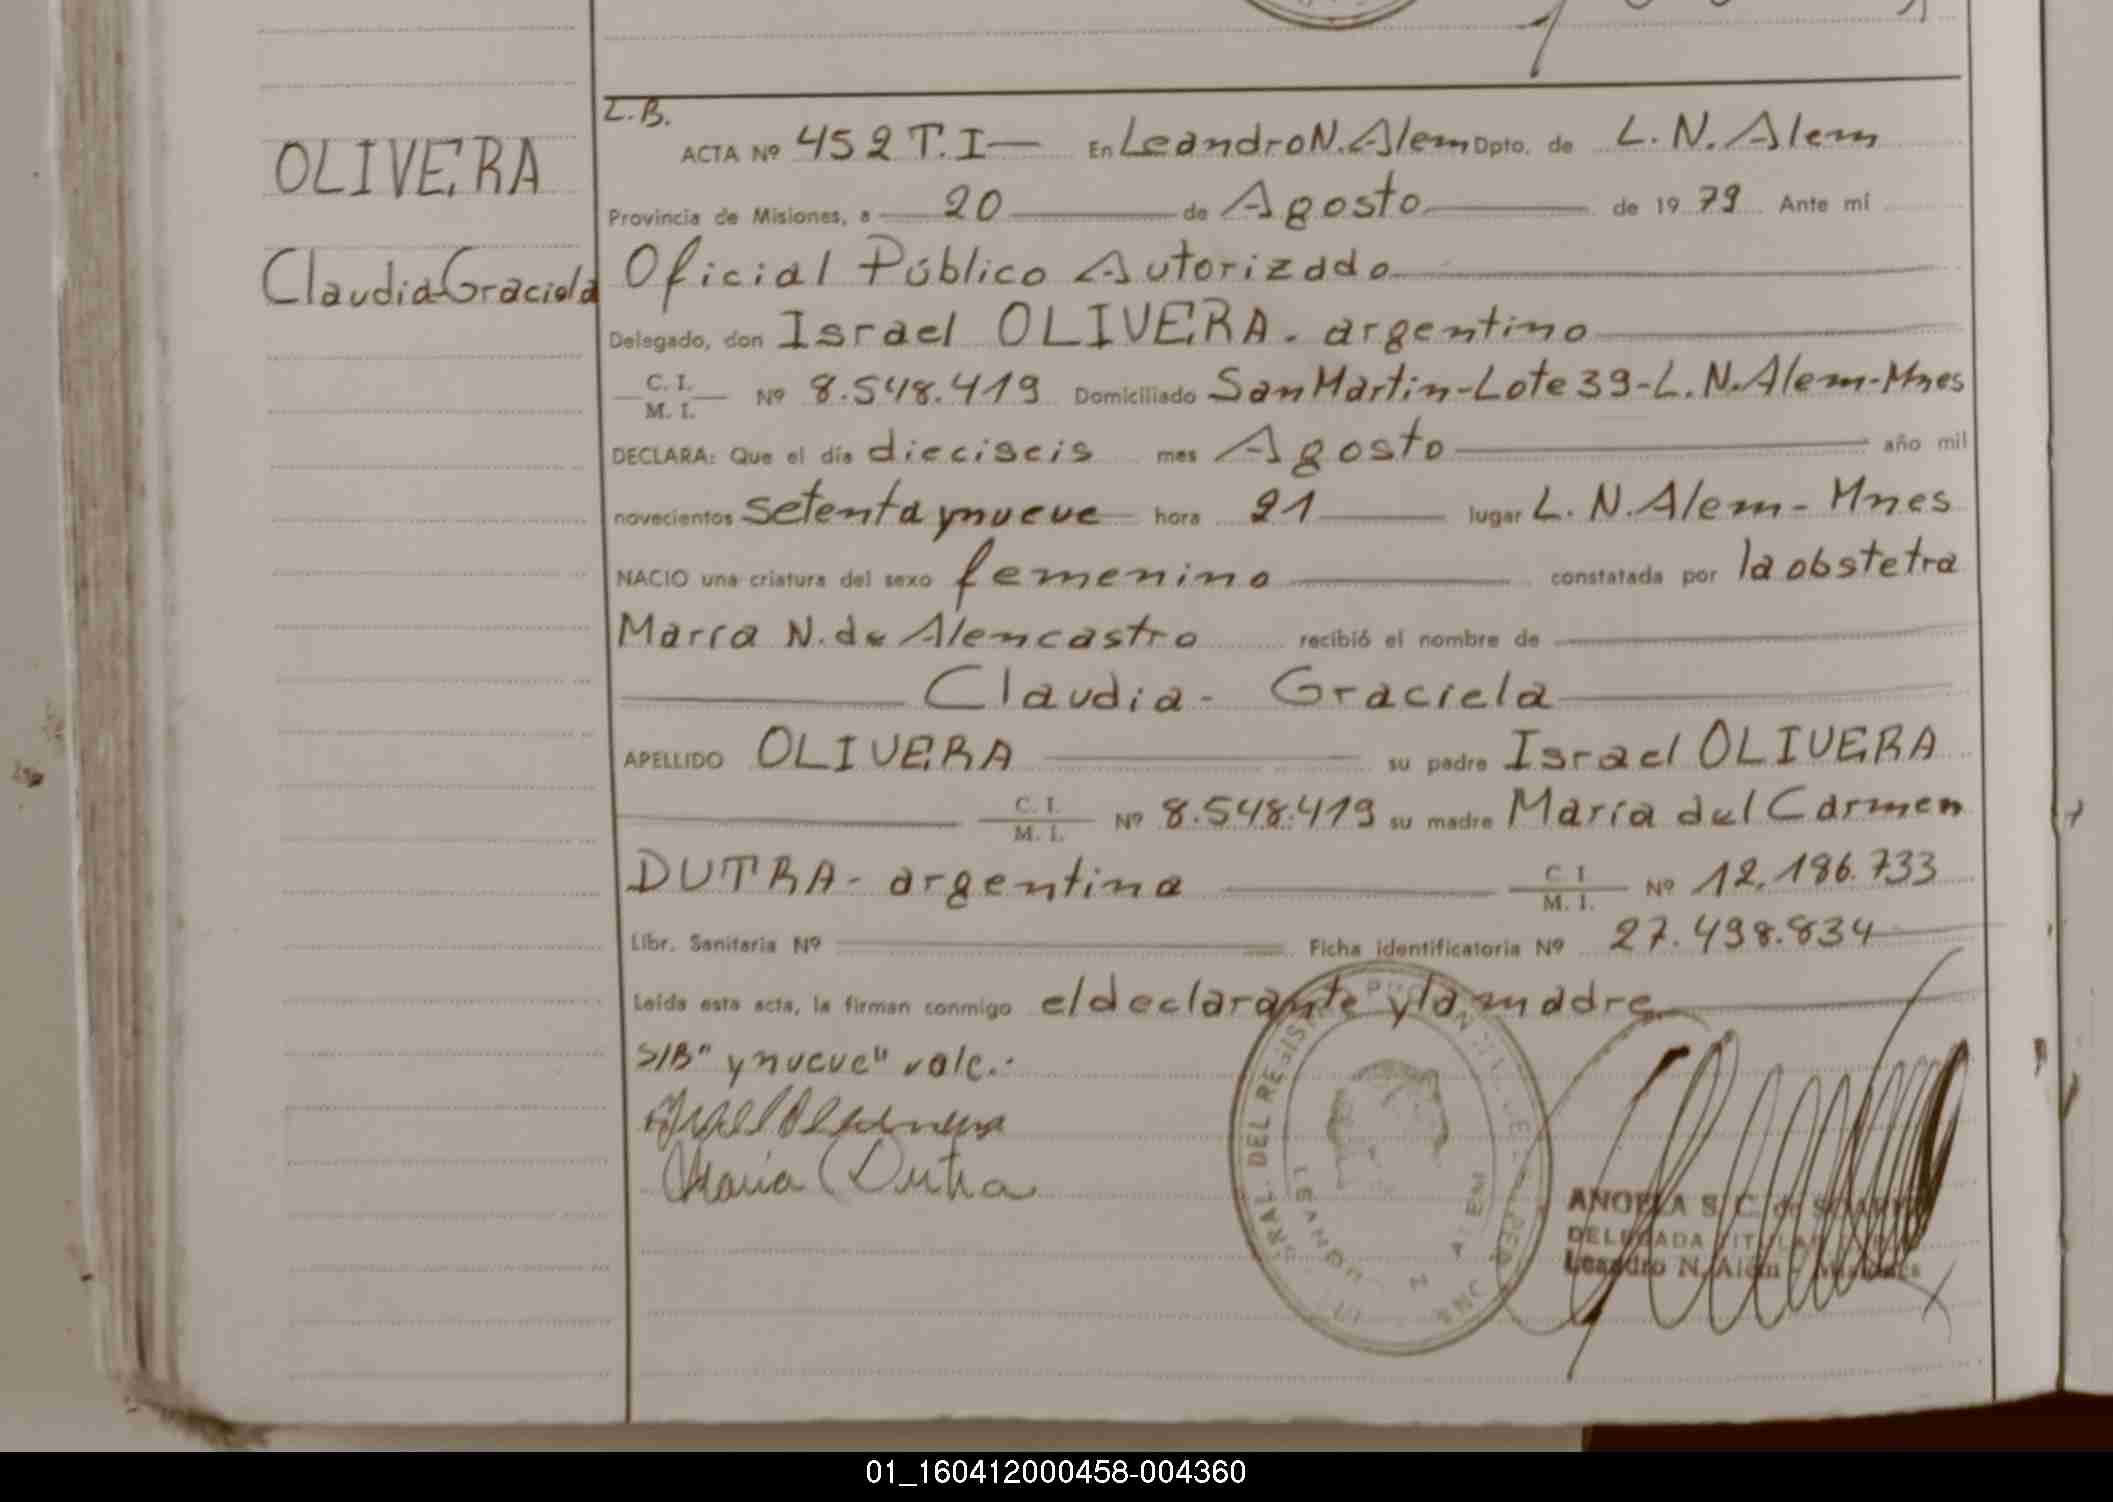 L.B.
ACTA Nº 452 T.I— En Leandro N. Alem Dpto. de L. N. Alem
OLIVERA
Provincia de Misiones, a 20 de Agosto de 1979 Ante mí
Claudia Graciela
Oficial Público Autorizado
Delegado, don Israel OLIVERA - argentino
C. I. / M. I. Nº 8.548.419 Domiciliado San Martín - Lote 39 - L. N. Alem - Mnes
DECLARA: Que el día dieciseis mes Agosto año mil
novecientos setenta y nueve hora 21 lugar L. N. Alem - Mnes
NACIO una criatura del sexo femenino constatada por la obstetra
María N. de Alencastro recibió el nombre de
Claudia - Graciela
APELLIDO OLIVERA su padre Israel OLIVERA
C. I. / M. I. Nº 8.548.419 su madre María del Carmen
DUTRA - argentina C I / M. I. Nº 12.186.733
Libr. Sanitaria Nº Ficha identificatoria Nº 27.498.834
Leída esta acta, la firman conmigo el declarante y la madre
S/B "y nueve" vale.-
María Dutra
DEL REGIS
LEANDRO N ALEM
ANGELA S. C. de
DELEGADA TITULAR
Leandro N. Alem - Misiones
01_160412000458-004360